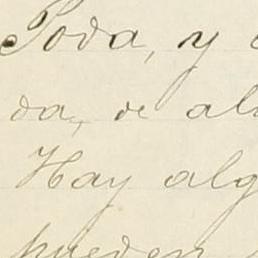 Poda, y
da, de al
Hay alg
pueden